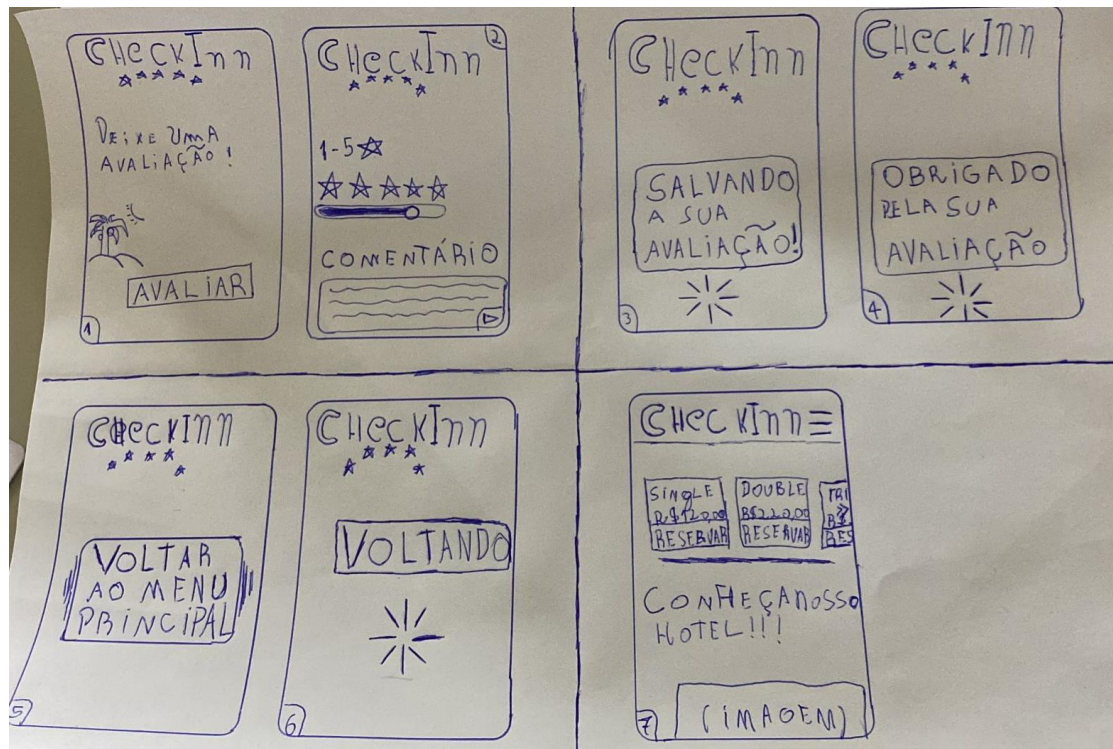 CHecKInn
DEiXE UMA
AVALiAÇÃO!
AVALIAR
1
2
CHecKInn
1-5
COMENTÁRIO
CHecKInn
SALVANDO
A SUA
AVALiAÇÃO!
3
CHecKInn
OBRiGADO
PELA SUA
AVALiAÇÃO
4
CHecKInn
VOLTAR
AO MENU
PRiNCiPAL
5
CHecKInn
VOLTANDO
6
CHecKInn
SiNgLE
R$120,00
RESERVAR
DOUBLE
R$220,00
RESERVAR
TRI
R$
RES
CONHEÇA NOSSO
HOTEL!!!
(iMAGEM)
7